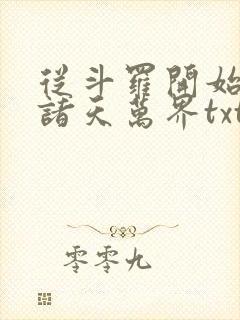 從斗羅開始
諸天萬界txt
零零九